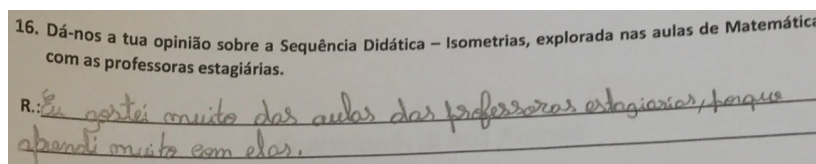 16. Dá-nos a tua opinião sobre a Sequência Didática – Isometrias, explorada nas aulas de Matemática
com as professoras estagiárias.
R.: Eu gostei muito das aulas das professoras estagiarias, porque
aprendi muito com elas.